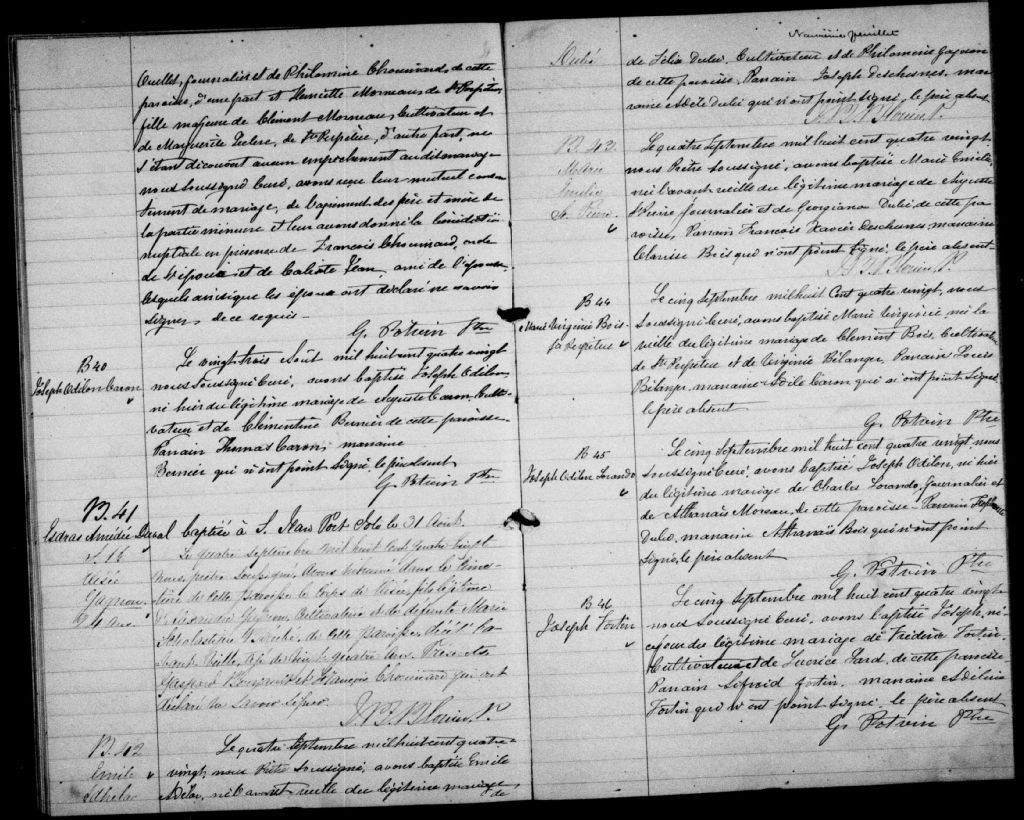 Ouellet, journalier et de Philomine Chouinard, de cette
paroisse, d'une part et Henriette Morneau de Ste Perpétue,
fille majeure de Clément Morneau, Cultivateur et
de Marguerite Leclerc, de Ste Perpétue, d'autre part, ne
s'étant découvert aucun empêchement au dit mariage
nous soussigné Curé, avons reçu leur mutuel consen
tement de mariage, de l'agrément des père et mère de
la partie mineure et leur avons donné la bénédiction
nuptiale en présence de François Chouinard, oncle
de l'époux et de Calixte Jean, ami de l'épouse
lesquels ainsi que les époux ont déclaré ne savoir
signer, de ce requis.
G. Potvin Ptre
B 40
Joseph Odilon Caron
Le vingt-trois Août mil huit cent quatre vingt
nous soussigné Curé, avons baptisé Joseph Odilon
né hier du légitime mariage de Auguste Caron, Culti-
vateur et de Clémentine Bernier de cette paroisse.
Parrain Thomas Caron, marraine
Bernier qui n'ont point signé, le père absent
G. Potvin Ptre
B. 41
Esdras Amédée Duval baptisé à S. Jean Port Joli le 31 Août.
Le quatre septembre mil huit cent quatre vingt
nous prêtre soussigné, avons inhumé dans le cime-
tière de cette Paroisse le corps de
Gagnon, Cultivateur et de défunte Marie
Scholastique de cette Paroisse, décédé
âgé de vingt quatre ans. Présents
Gaspard et François Chouinard qui ont
déclaré ne savoir signer.
J. B. Blouin, P.
B. 42
Emile
Le quatre septembre mil huit cent quatre-
vingt, nous Prêtre soussigné, avons baptisé Emile
né l'avant veille du légitime mariage
de
Neuvième feuillet
Dubé
de Félix Dubé, Cultivateur et de Philomène Gagnon
de cette paroisse. Parrain Joseph Deschesnes, mar
raine Adèle Dubé qui n'ont point signé, le père absent
J. B. Blouin P.
B. 43
Marie
Emélie
St. Pierre
Le quatre septembre mil huit cent quatre vingt
nous Prêtre soussigné, avons baptisé Marie Emélie
née l'avant veille du légitime mariage de Auguste
St Pierre Journalier et de Georgiana Dubé de cette pa
roisse, Parrain François Xavier Deschesnes, marraine
Clarisse Bois qui n'ont point signé, le père absent
J. B. Blouin, P.
B 44
Marie Virginie Bois
Ste Perpétue
Le cinq Septembre mil huit Cent quatre vingt, nous
soussigné Curé, avons baptisé Marie Virginie née la
veille du légitime mariage de Clément Bois, Cultivat
de Ste Perpétue et de Virginie Bélanger, Parrain Louis
Bélanger, marraine Adèle Caron qui n'ont point signé
le père absent
G. Potvin Ptre
B 45
Joseph Odilon Lorando
Le cinq septembre mil huit cent quatre vingt nous
soussigné Curé, avons baptisé Joseph Odilon, né hier
du légitime mariage de Charles Lorando, Journalier et
de Athanaïs Moreau, de cette paroisse. Parrain
Dubé, marraine Athanaïs Bois qui n'ont point
signé, le père absent
G. Potvin Ptre
B 46
Joseph Fortin
Le cinq septembre mil huit cent quatre vingt
nous soussigné Curé, avons baptisé Joseph, né
ce jour du légitime mariage de Frédéric Fortin
Cultivateur et de Lucrèce Gard, de cette paroisse
Parrain Sifroid Fortin, marraine Adelina
Fortin qui n'ont point signé, le père absent
G. Potvin Ptre